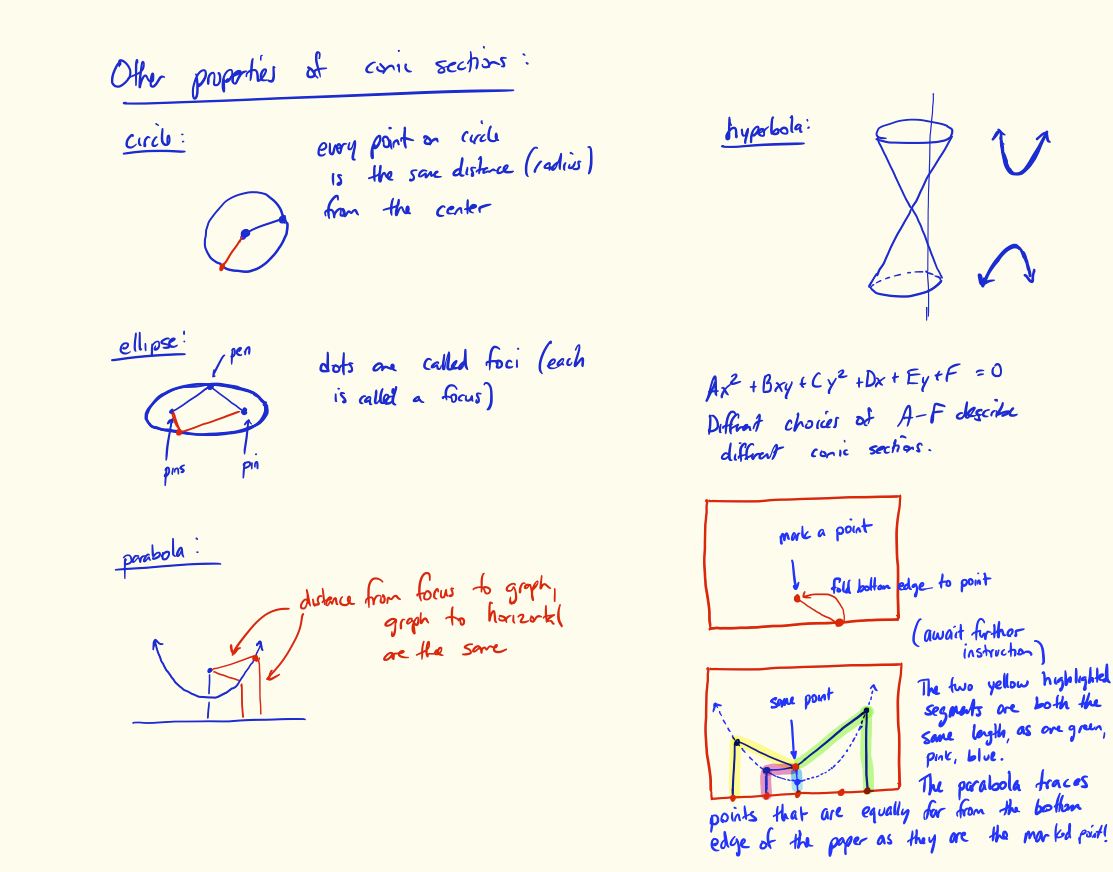 Other properties of conic sections:
circle:
every point on circle
is the same distance (radius)
from the center
ellipse:
pen
pins
pin
dots are called foci (each
is called a focus)
parabola:
distance from focus to graph,
graph to horizontal
are the same
hyperbola:
Ax² + Bxy + Cy² + Dx + Ey + F = 0
Diffrent choices of A-F describe
diffrent conic sections.
mark a point
fold bottom edge to point
(await further
instruction)
same point
The two yellow highlighted
segments are both the
same length, as are green,
pink, blue.
The parabola traces
points that are equally far from the bottom
edge of the paper as they are the marked point!